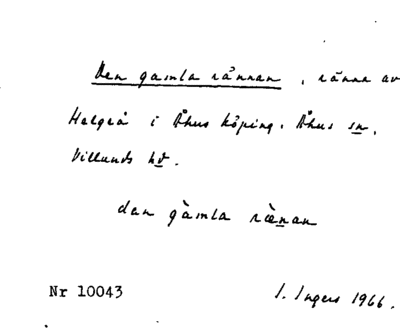 Den gamla rännan, ränna av
Helgeå i Åhus köping. Åhus sn,
Villands hd.
dan gàmla ræ̀nan
Nr 10043
I. Ingers 1966.